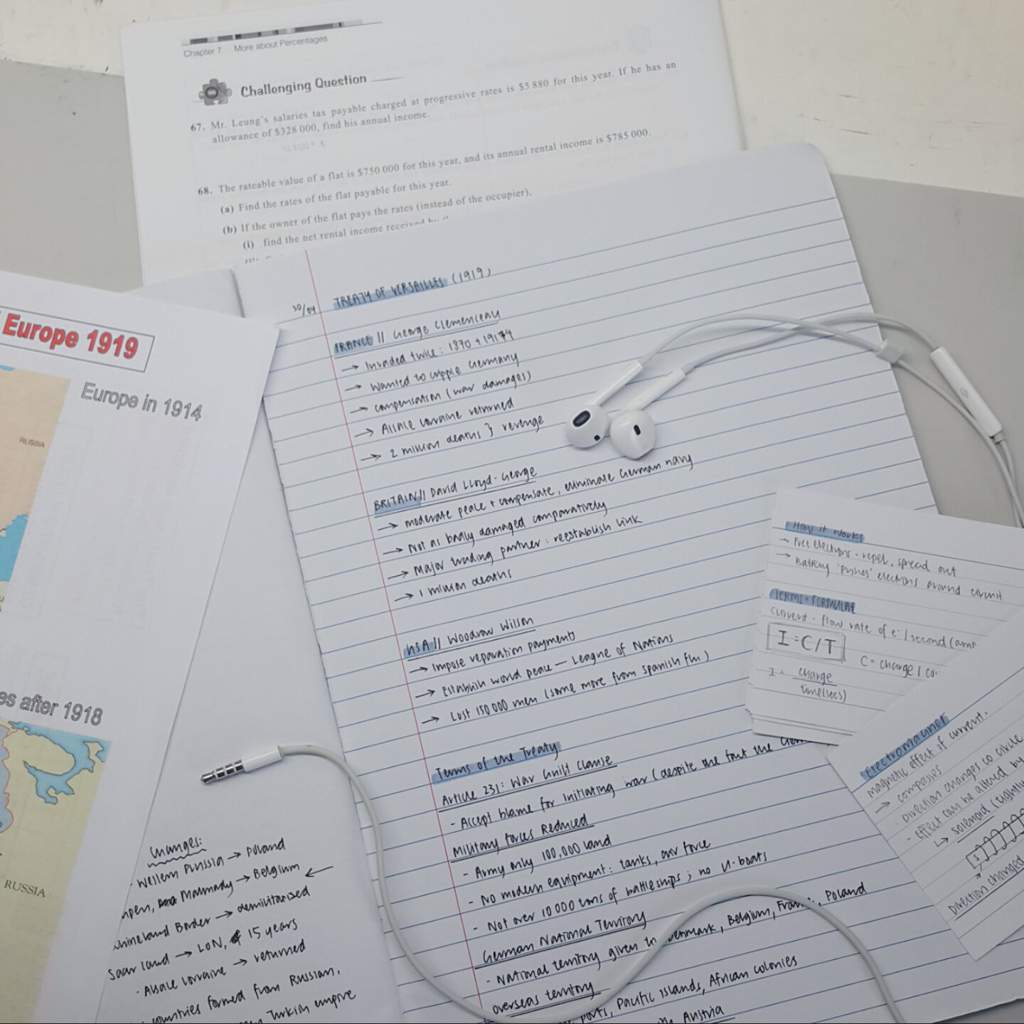 Chapter 7 More about Percentages
Challenging Question
67. Mr. Leung's salaries tax payable charged at progressive rates is $5 880 for this year. If he has an
allowance of $328 000, find his annual income.
68. The rateable value of a flat is $750 000 for this year, and its annual rental income is $785 000.
(a) Find the rates of the flat payable for this year.
(b) If the owner of the flat pays the rates (instead of the occupier),
(i) find the net rental income received
Europe 1919
Europe in 1914
RUSSIA
es after 1918
RUSSIA
Changes:
Western Prussia → Poland
Malmedy → Belgium ←
Rhineland Border → demilitarized
Saar land → LON, 15 years
- Alsace Lorraine → returned
countries formed from Russian,
Turkish empire
30/04
TREATY OF VERSAILLES (1919)
FRANCE // George Clemenceau
→ Invaded twice: 1870 + 1914
→ Wanted to cripple Germany
→ compensation (war damages)
→ Alsace Lorraine returned
→ 2 million deaths } revenge
BRITAIN // David Lloyd-George
→ moderate peace + compensate, eliminate German navy
→ Not as badly damaged comparatively
→ Major trading partner: reestablish link
→ 1 million deaths
USA // Woodrow Wilson
→ Impose reparation payments
→ Establish world peace — League of Nations
→ Lost 150 000 men (some more from Spanish flu)
Terms of the Treaty
Article 231: War Guilt Clause
- Accept blame for initiating war (despite the fact the
Military Forces Reduced
- Army only 100,000 land
- No modern equipment: tanks, air force
- Not over 10 000 tons of battleships; no U-boats
German National Territory
- National territory given to Denmark, Belgium, France, Poland
overseas territory
ports, Pacific Islands, African colonies
Austria
How it works
→ Free electrons - repel, spread out
→ Battery 'pushes' electrons around circuit
TERMS + FORMULAE
Current - flow rate of e-/second (amp
I = C/T
C = charge / co
I = charge
time(secs)
Electromagnet
magnetic effect if current.
→ compasses
Direction changes to circle
- Effect can be altered by
↳ solenoid (tightly
Direction changed